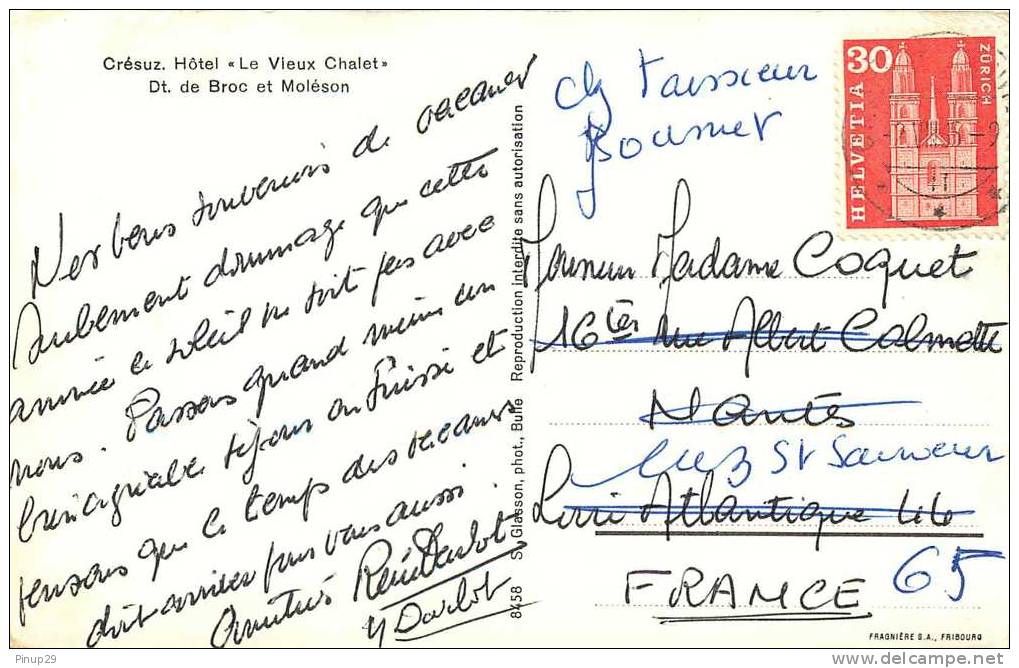 Crésuz. Hôtel «Le Vieux Chalet»
Dt. de Broc et Moléson
Nos bons souvenirs de vacances
seulement dommage que cette
année le soleil ne soit pas avec
nous. Passons quand même un
bien agréable séjour en Suisse et
pensons que le temps des vacances
doit arriver pour vous aussi.
Amitiés René Darlot
Y Darlot
8458 S. Glasson, phot., Bulle Reproduction interdite sans autorisation
30
HELVETIA
ZÜRICH
II
Bousner
Monsieur Madame Coquet
16 ter rue Albert Calmette
Nantes
Luz St Sauveur
Loire Atlantique 44
65
FRANCE
FRAGNIÈRE S.A., FRIBOURG
Pinup29
delcampe.net